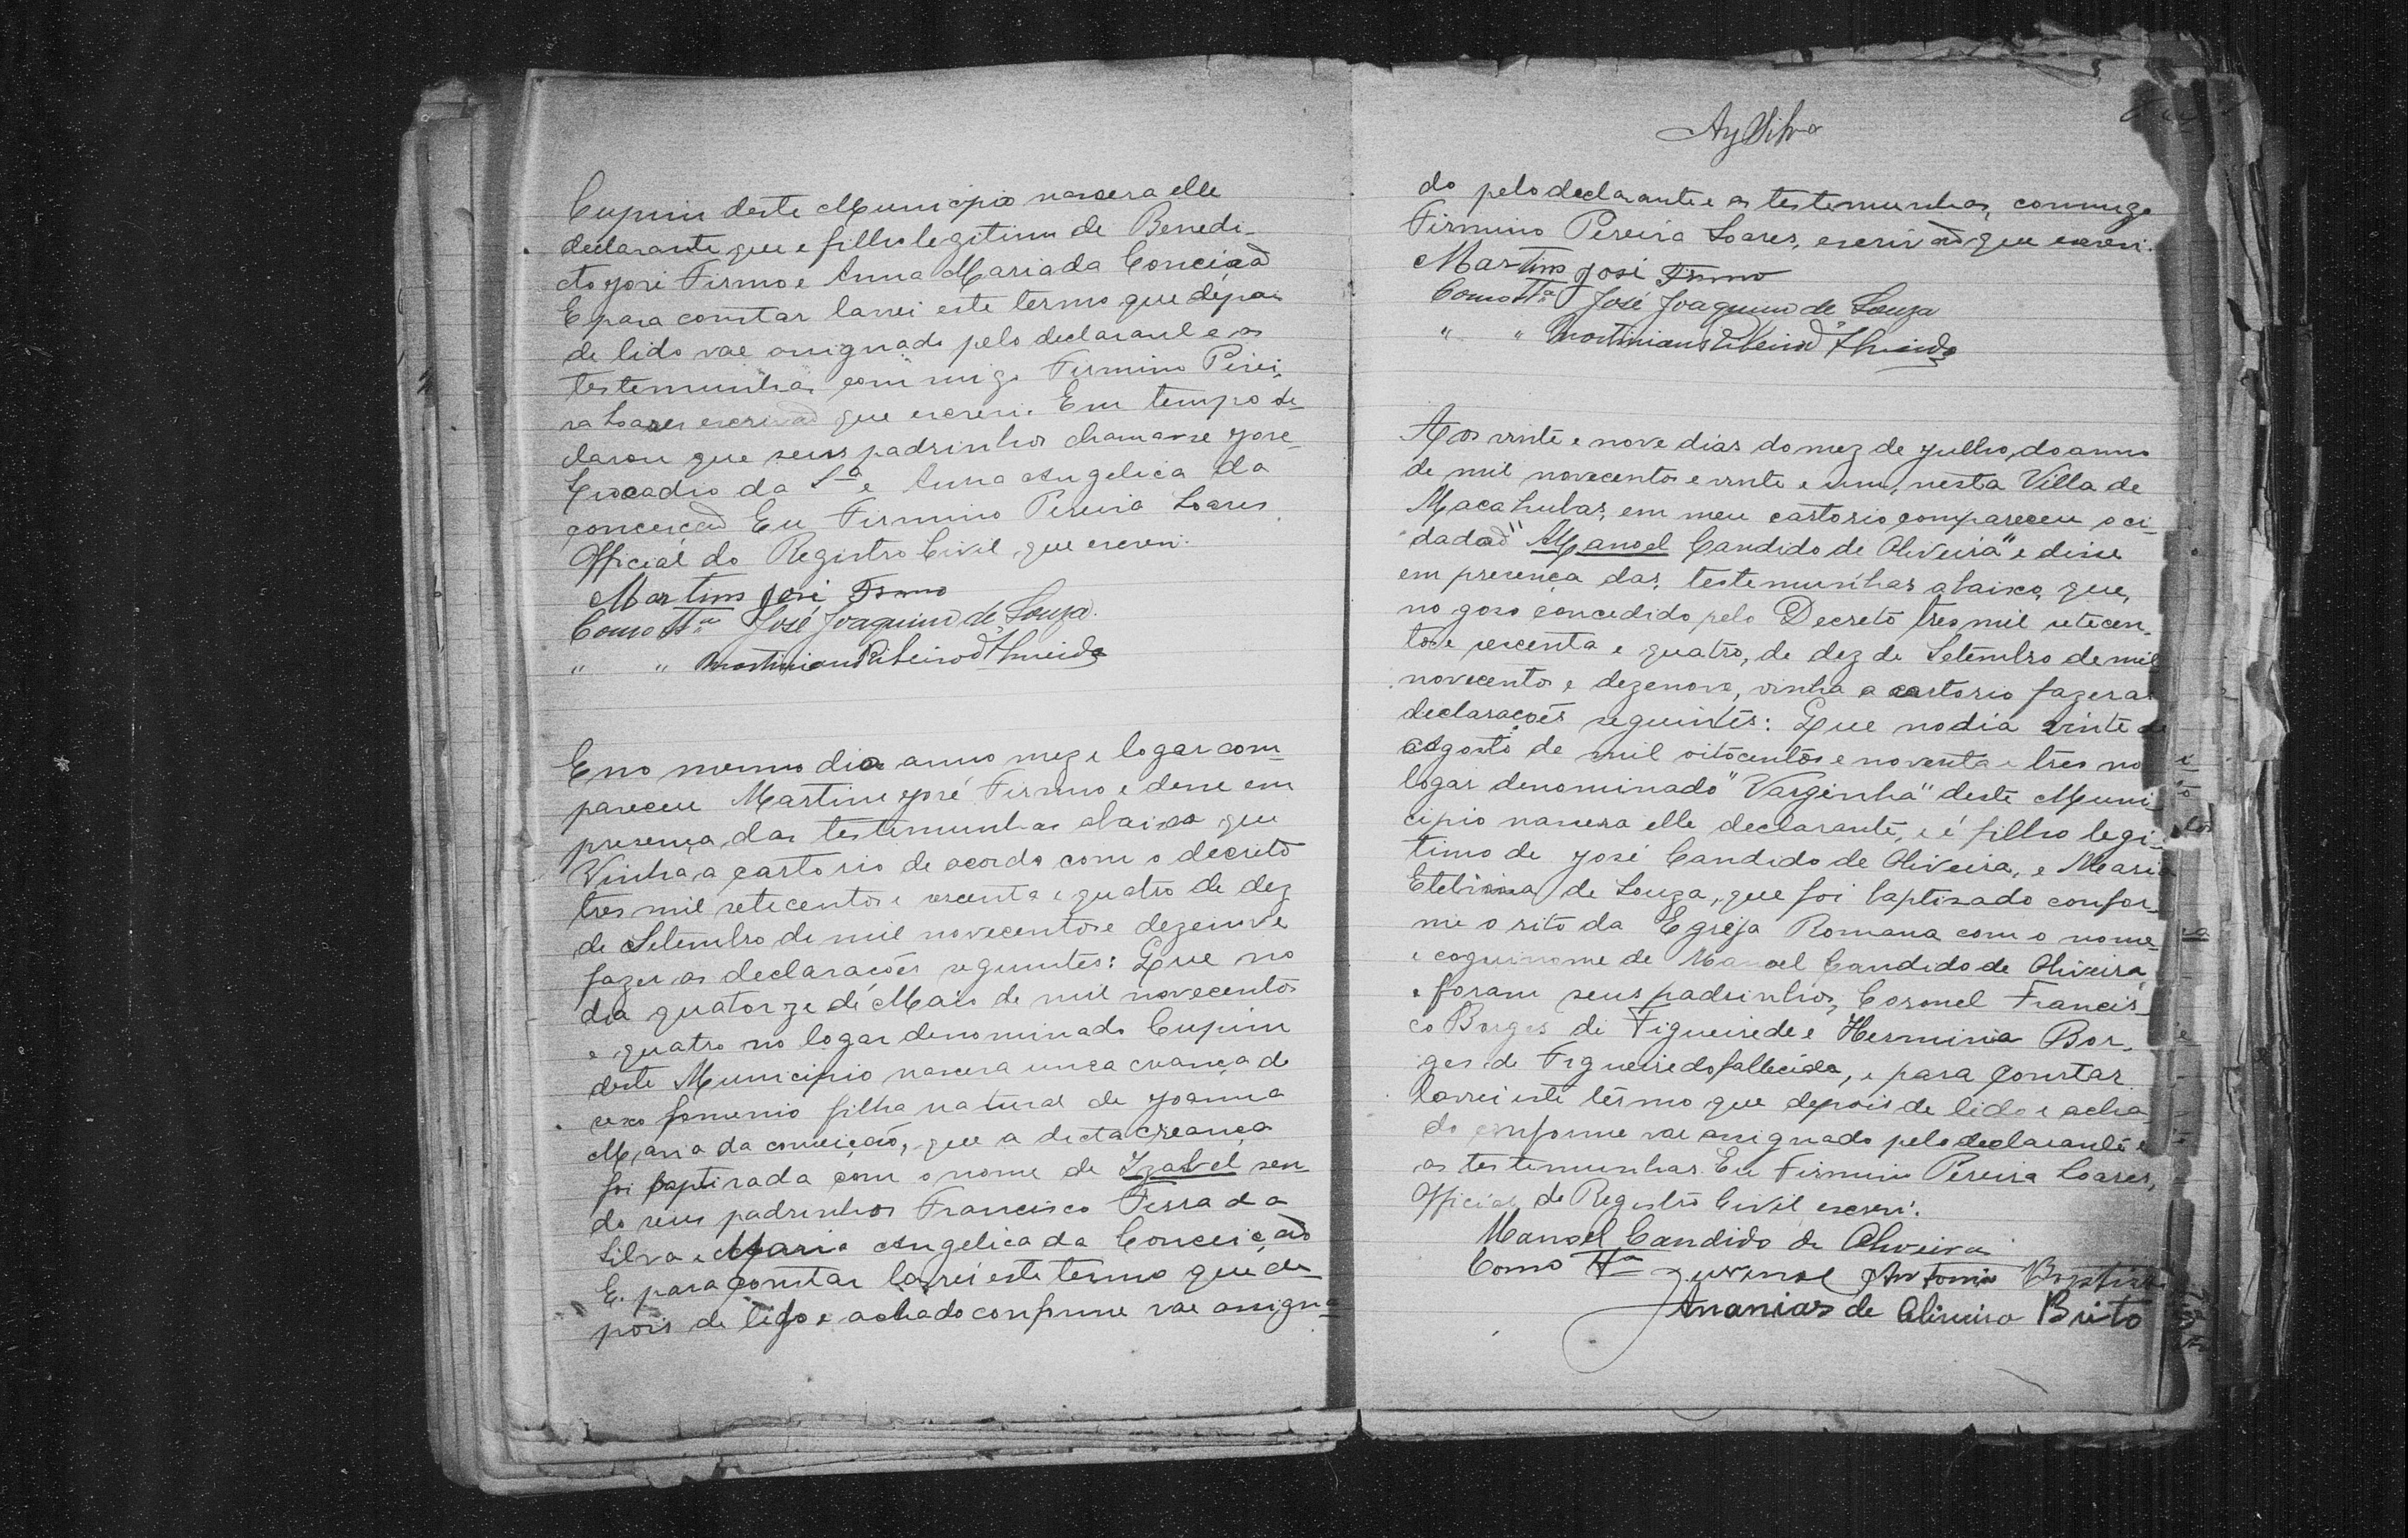 Cupim deste Municipio nascera elle
declarante que e filho legitimo de Benedi-
cto José Firmo e Anna Maria da Conceição
E para constar lavrei este termo que depois
de lido vae assignado pelo declarante e as
testemunhas commigo Firmino Perei-
ra Soares escrivão que escrevi. Em tempo de-
clarou que seus padrinhos chamam-se José
Leocadio da S.ª e Anna Angelica da
Conceição Eu Firmino Pereira Soares
Official do Registro Civil que escrevi.
Martins José Firmo
Como Tta José Joaquim de Souza.
" " Martiniano Ribeiro d'Almeida
E no mesmo dia anno mez e logar com-
pareceu Martins José Firmo e disse em
presença das testemunhas abaixo que
Vinha a cartorio de acordo com o decreto
tres mil setecentos e sescenta e quatro de dez
de Setembro de mil novecentos e dezenove
fazer as declarações seguintes: Que no
dia quatorze de Maio de mil novecentos
e quatro no logar denominado Cupim
deste Municipio nascera uma creança do
sexo femenio filha natural de Joanna
Maria da conceição, que a dicta creança
foi baptisada com o nome de Izabel sen-
do seus padrinhos Francisco da
Silva e Maria Angelica da Conceição
E. para constar lavrei este termo que de-
pois de lido e achado conforme vae assigna-
Ay Silva
do pelo declarante e as testemunhas, commigo
Firmino Pereira Soares, escrivão que escrevi.
Martins José Firmo
Como Tta José Joaquim de Souza
" " Martiniano Ribeiro d'Almeida
Aos vinte e nove dias do mez de Julho, do anno
de mil novecentos e vinte e um, nesta Villa de
Macahubas, em meu cartorio compareceu o ci-
dadão "Manoel Candido de Oliveira" e disse
em presença das testemunhas abaixo, que,
no goso concedido pelo Decreto tres mil setecen-
tos e sescenta e quatro, de dez de Setembro de mil
novecentos e dezenove, vinha a cartorio fazer as
declarações seguintes: Que no dia vinte de
agosto de mil oitocentos e noventa e tres no
logar denominado "Varginha" deste Muni-
cipio nascera elle declarante, e é filho legi-
timo de José Candido de Oliveira, e Maria
Etelvina de Souza, que foi baptisado confor-
me o rito da Egreja Romana com o nome
e cognome de Manoel Candido de Oliveira
e foram seus padrinhos, Coronel Francis-
co Borges de Figueirede e Herminia Bor-
ges de Figueiredo fallecida, e para constar
lavrei este têrmo que depois de lido e acha-
do conforme vae assignado pelo declarante e
as testemunhas. Eu Firmino Pereira Soares,
Official do Registro Civil, escrevi.
Manoel Candido de Oliveira
Como Tta Juvenal Antonio Baptista
Ananias de Oliveira Brito